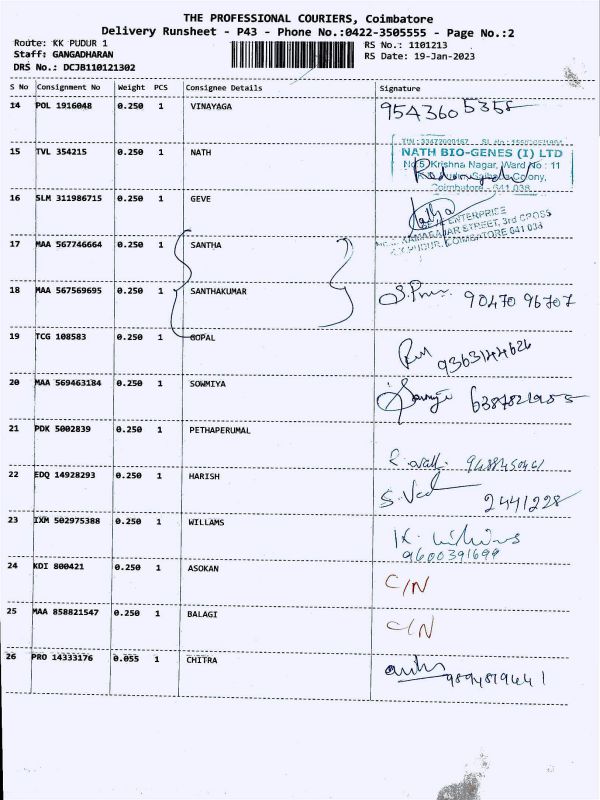 THE PROFESSIONAL COURIERS, Coimbatore
Delivery Runsheet - P43 - Phone No.:0422-3505555 - Page No.:2
Route: KK PUDUR 1
RS No.: 1101213
Staff: GANGADHARAN
RS Date: 19-Jan-2023
DRS No.: DCJB110121302
S No Consignment No Weight PCS Consignee Details Signature
14 POL 1916048 0.250 1 VINAYAGA 9543605358
15 TVL 354215 0.250 1 NATH
NATH BIO-GENES (I) LTD
No 5, Krishna Nagar, Ward No : 11
Colony,
Coimbatore - 641 038
16 SLM 311986715 0.250 1 GEVE
ENTERPRISE
STREET, 3rd CROSS
K.K.PUDUR, COIMBATORE 641 038
17 MAA 567746664 0.250 1 SANTHA
18 MAA 567569695 0.250 1 SANTHAKUMAR 90470 96707
19 TCG 108583 0.250 1 GOPAL 9363144626
20 MAA 569463184 0.250 1 SOWMIYA
21 PDK 5002839 0.250 1 PETHAPERUMAL
22 EDQ 14928293 0.250 1 HARISH 2441228
23 IXM 502975388 0.250 1 WILLAMS
9600391699
24 KDI 800421 0.250 1 ASOKAN C/N
25 MAA 858821547 0.250 1 BALAGI C/N
26 PRO 14333176 0.055 1 CHITRA 9894819441